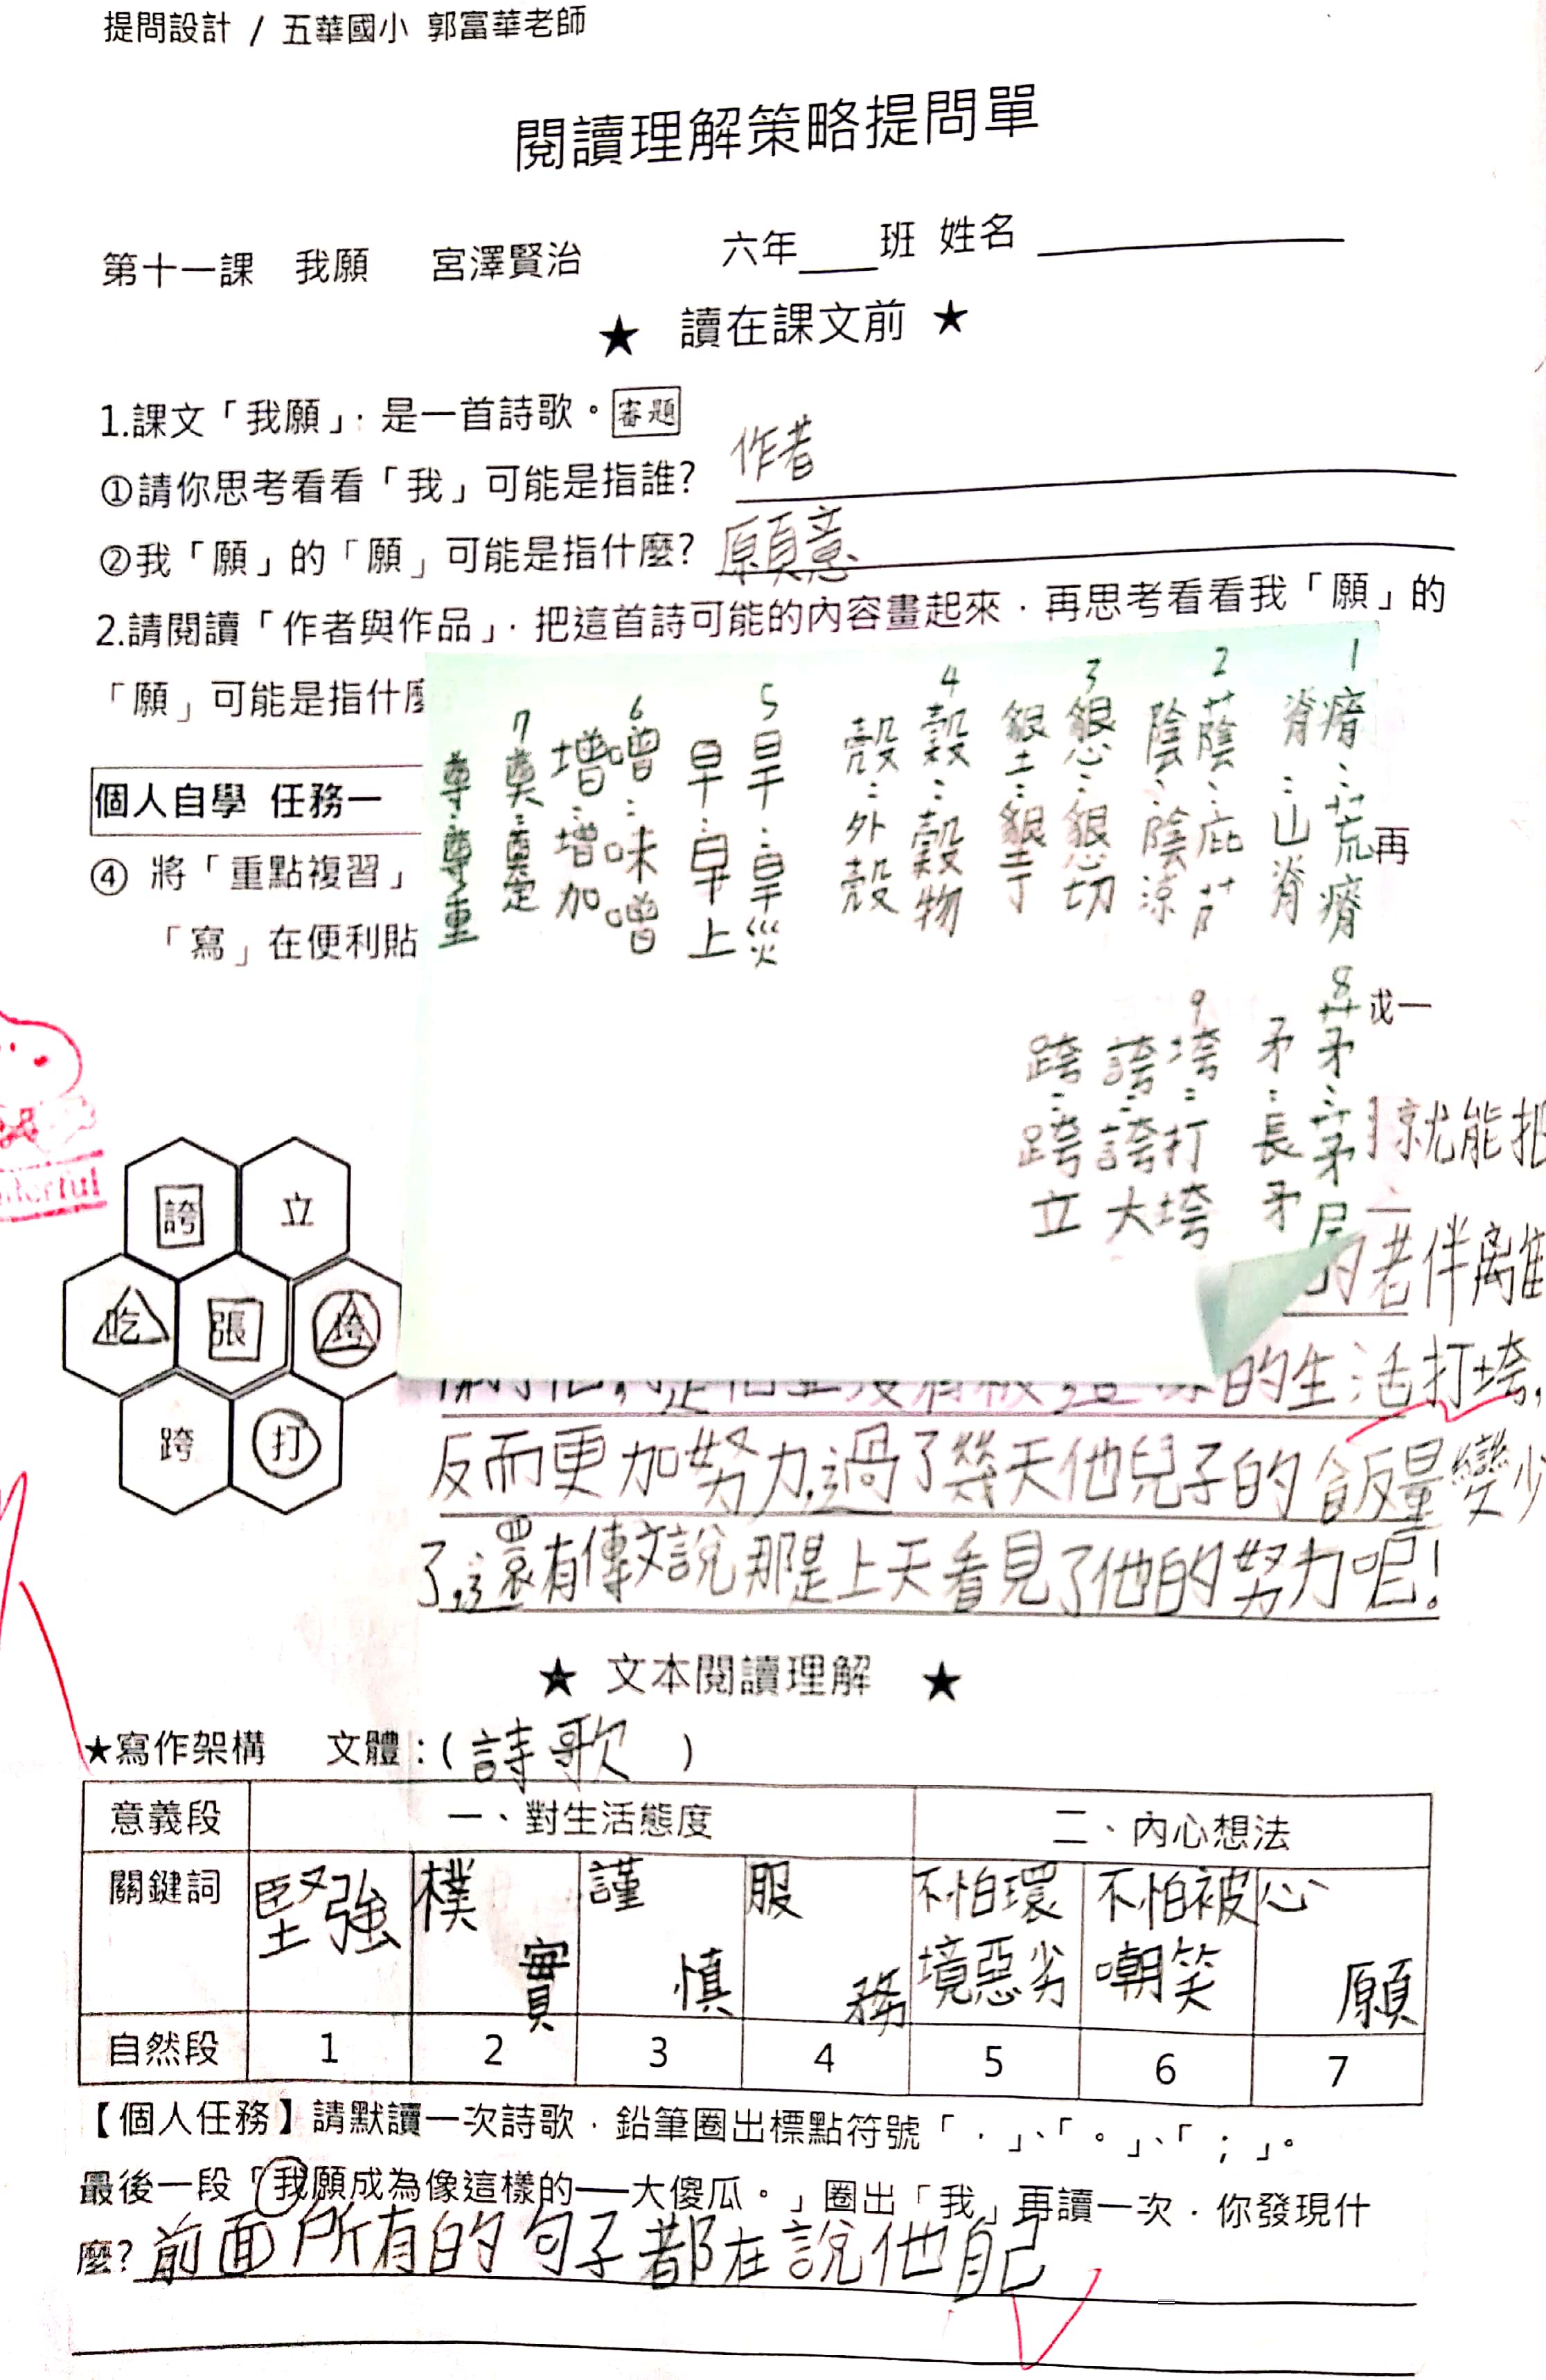 提問設計 / 五華國小 郭富華老師
閱讀理解策略提問單
第十一課 我願 宮澤賢治 六年____班 姓名
★ 讀在課文前 ★
1.課文「我願」,是一首詩歌。審題
①請你思考看看「我」可能是指誰? 作者
②我「願」的「願」可能是指什麼? 願意
2.請閱讀「作者與作品」,把這首詩可能的內容畫起來,再思考看看我「願」的
「願」可能是指什麼
個人自學 任務一
④ 將「重點複習」
再
「寫」在便利貼
或一
1 瘠:荒瘠
脊:山脊
2 蔭:庇蔭
陰:陰涼
3 懇:懇切
墾:墾丁
4 穀:穀物
殼:外殼
5 旱:旱災
早:早上
6 噌:味噌
增:增加
7 奠:奠定
尊:尊重
8 茅:茅屋
矛:長矛
9 垮:打垮
誇:誇大
跨:跨立
就能把
的老伴離
的生活打垮,
反而更加努力,過了幾天他兒子的飯量變少
了,還有傳文說那是上天看見了他的努力呢!
誇 立
吃 張 垮
跨 打
★ 文本閱讀理解 ★
★寫作架構 文體:(詩歌)
意義段 一、對生活態度 二、內心想法
關鍵詞 堅強 樸實 謹慎 服務 不怕環境惡劣 不怕被嘲笑 心願
自然段 1 2 3 4 5 6 7
【個人任務】請默讀一次詩歌,鉛筆圈出標點符號「,」、「。」、「;」。
最後一段「我願成為像這樣的──大傻瓜。」圈出「我」再讀一次,你發現什
麼?前面所有的句子都在說他自己